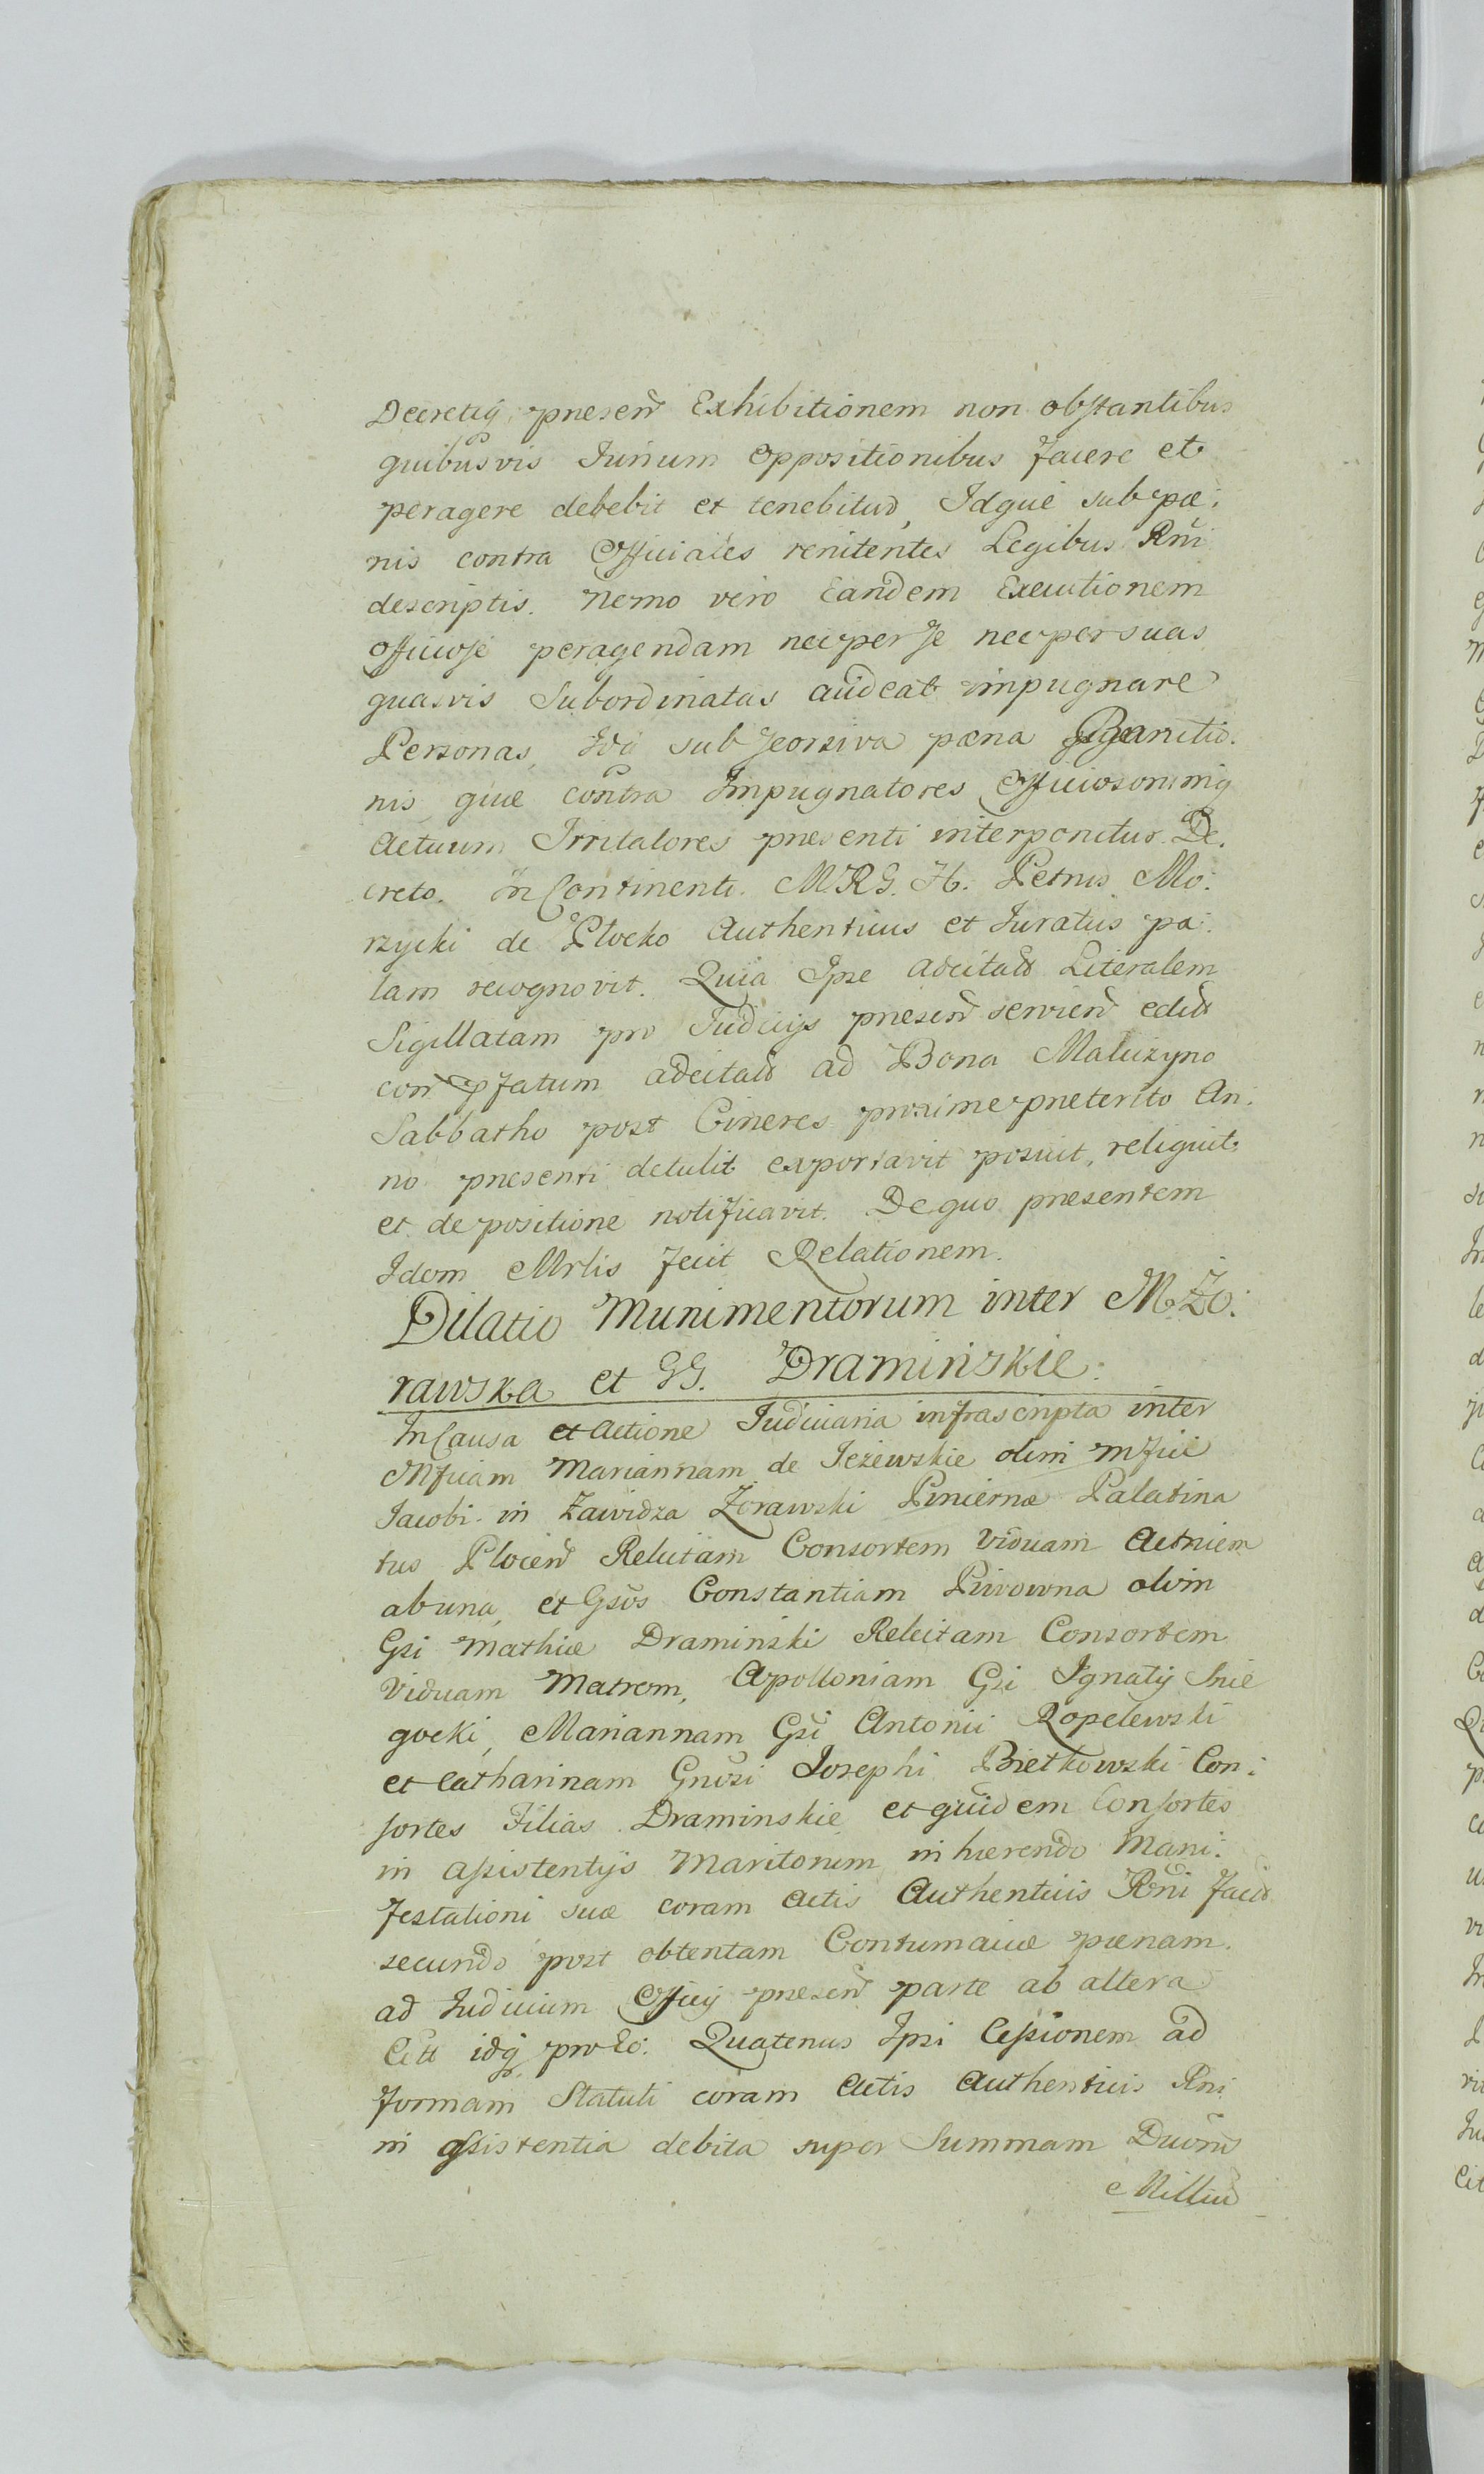 Decretiq̃ præsen̄ Exhibitionem non obstantibus
quibusvis Jurium Oppositionibus facere et
peragere debebit et tenebitur, Idque sub pæ:
nis contra Officiales renitentes Legibus Rni
descriptis. Nemo vero Eandem Executionem
Officiose peragendam nec per se nec per suas
quasvis Subordinatas audeat impugnare
Personas, Idq sub seorsiva pæna Bannitio:
nis, quæ contra Impugnatores Officiosorumq
Actuum Irritatores præsenti interponitur De:
creto. In Continenti. MRG. H. Petrus Mo:
rzycki de Plocko Authenticus et Juratus pa:
lam recognovit. Quia Ipse adcitaõ Literalem
Sigillatam pro Judicijs præsen̄ servien̄ edit
con pfatum adcitaõ ad Bona Maluzyno
Sabbatho post Cineres proxime præterito An:
no præsenti detulit exportavit posuit, reliquit
et de positione notificavit. De quo præsentem
Idem Mrlis fecit Relationem.
Dilatio Munimentorum inter M. Żo:
rawska et GG. Dramińskie.
In Causa et Actione Judiciaria infrascripta inter
Mficam Mariannam de Jeżewskie olim Mfici
Jacobi in Zawidza Żorawski Pincernæ Palatina
tus Plocen̄ Relictam Consortem Viduam Actricem
ab una, et Gsõs Constantiam Piwowna olim
Gsi Mathiæ Draminski Relictam Consortem
Viduam Matrem, Apolloniam Gsi Ignatij Snie
gocki, Mariannam Gsi Antonii Ropelewski
et Catharinam Gnosi Josephi Bietkowski Con:
sortes Filias Draminskie et quidem Consortes
in assistentijs Maritorum inhærendo Mani:
festationi suæ coram Actis Authenticis Rni fact
secundo post obtentam Contumaciæ pænam
ad Judicium Officij præsen̄ parte ab altera
Citt idq̃ pro Eo. Quatenus Ipsi Cessionem ad
formam Statuti coram Actis Authenticis Rni
in assistentia debita super Summam Duorũ
Milliũ